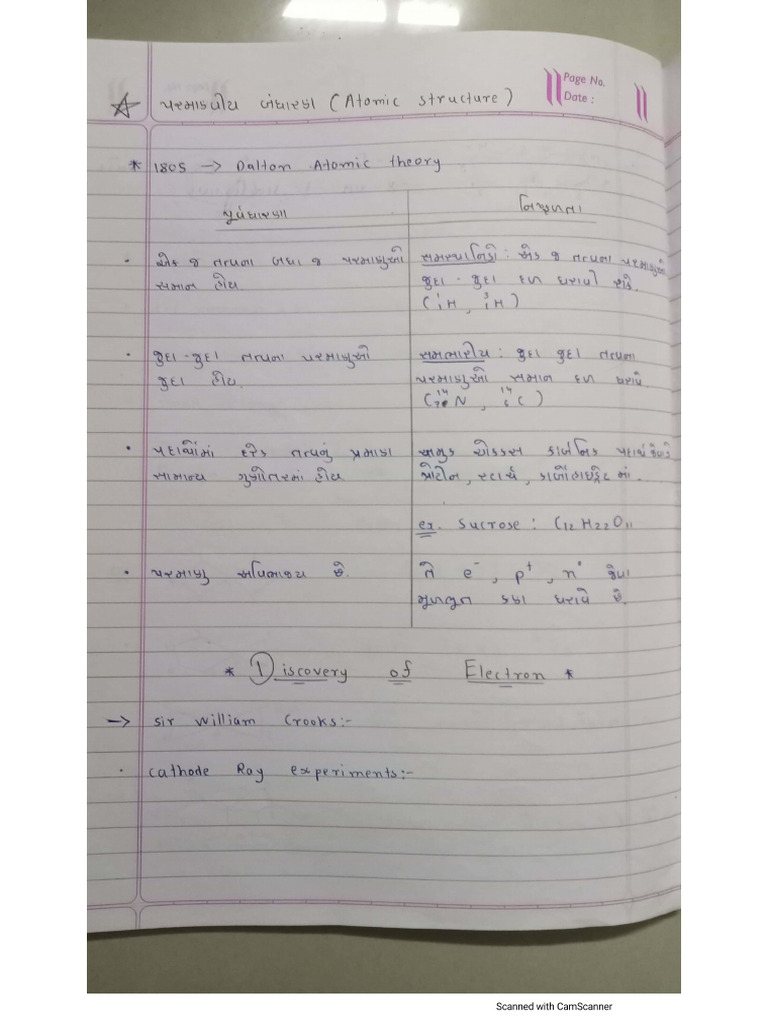 પરમાણ્વીય બંધારણ (Atomic structure)
Page No.
Date :
* 1805 → Dalton Atomic theory
પૂર્વધારણા
નિષ્ફળતા
• એક જ તત્વના બધા જ પરમાણુઓ
સમાન હોય
સમસ્થાનિકો : એક જ તત્વના પરમાણુઓ
જુદા - જુદા દળ ધરાવી શકે.
(¹₁H, ³₁H)
• જુદા - જુદા તત્વના પરમાણુઓ
જુદા હોય
સમભારીય : જુદા જુદા તત્વના
પરમાણુઓ સમાન દળ ધરાવે.
(¹⁴N, ¹⁴₆C)
• પદાર્થોમાં દરેક તત્વનું પ્રમાણ
સામાન્ય ગુણોતરમાં હોય
અમુક ચોક્કસ કાર્બનિક પદાર્થ જેવા કે
પ્રોટીન, સ્ટાર્ચ, કાર્બોહાઇડ્રેટ માં.
ex. Sucrose : C₁₂H₂₂O₁₁
• પરમાણુ અવિભાજ્ય છે.
તે e⁻, p⁺, n° જેવા
મુળભુત કણો ધરાવે છે.
* Discovery of Electron *
→ Sir William Crooks:-
• Cathode Ray experiments:-
Scanned with CamScanner